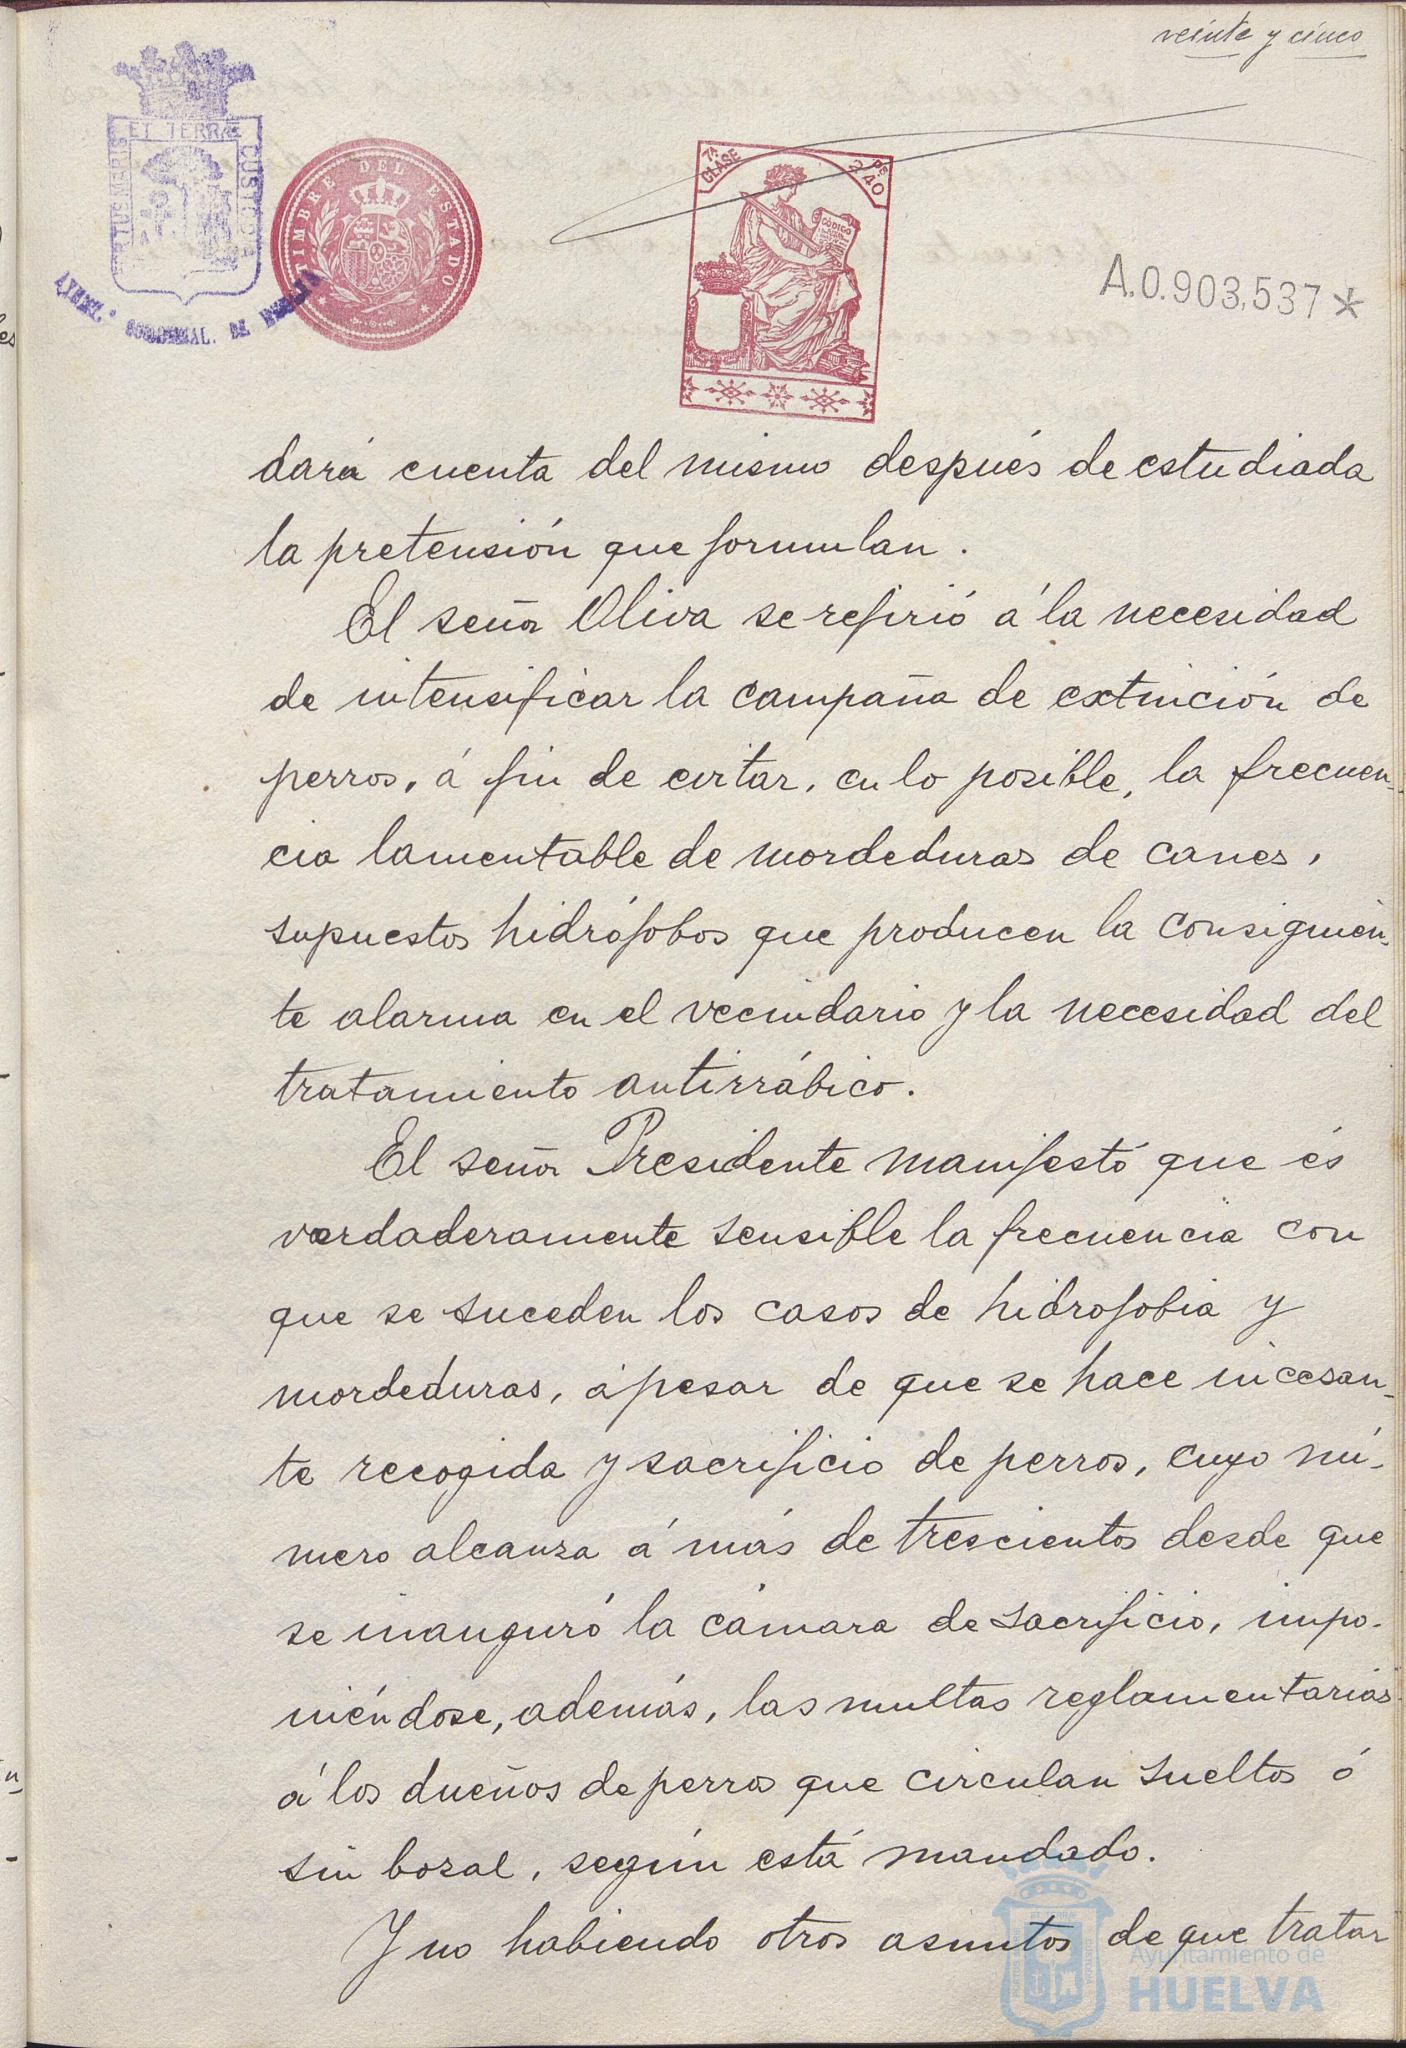 veinte y cinco
ET TERRÆ
PORTUS MARIS
CUSTODIA
AYUNT. CONSTITUCIONAL. DE HUELVA
TIMBRE DEL ESTADO
7ª CLASE
2 PS 40
CODIGO
A.0.903,537*
dará cuenta del mismo después de estudiada
la pretensión que formulan.
El señor Oliva se refirió á la necesidad
de intensificar la campaña de extinción de
perros, á fin de evitar, en lo posible, la frecuen-
cia lamentable de mordeduras de canes,
supuestos hidrófobos que producen la consiguien-
te alarma en el vecindario y la necesidad del
tratamiento antirrábico.
El señor Presidente manifestó que és
verdaderamente sensible la frecuencia con
que se suceden los casos de hidrofobia y
mordeduras, ápesar de que se hace incesan-
te recogida y sacrificio de perros, cuyo nú-
mero alcanza á más de trescientos desde que
se inauguró la cámara de sacrificio, impo-
niéndose, además, las multas reglamentarias
á los dueños de perros que circulan sueltos ó
sin bozal, según está mandado.
Y no habiendo otros asuntos de que tratar
Ayuntamiento de
HUELVA